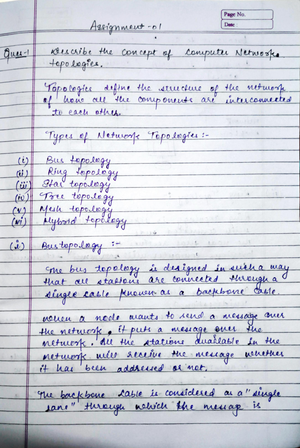 Page No.
Date
Assignment - 01
Ques-1 Describe the concept of Computer Network
topologies.
Topologies define the structure of the network
of how all the components are interconnected
to each other.
Types of Network Topologies :-
(i) Bus topology
(ii) Ring topology
(iii) Star topology
(iv) Tree topology
(v) Mesh topology
(vi) Hybrid topology
(i) Bus topology :-
The bus topology is designed in such a way
that all stations are connected through a
single cable known as a backbone cable.
when a node wants to send a message over
the network, it puts a message over the
network. All the stations available in the
network will receive the message whether
it has been addressed or not.
The backbone cable is considered as a "single
lane" through which the message is